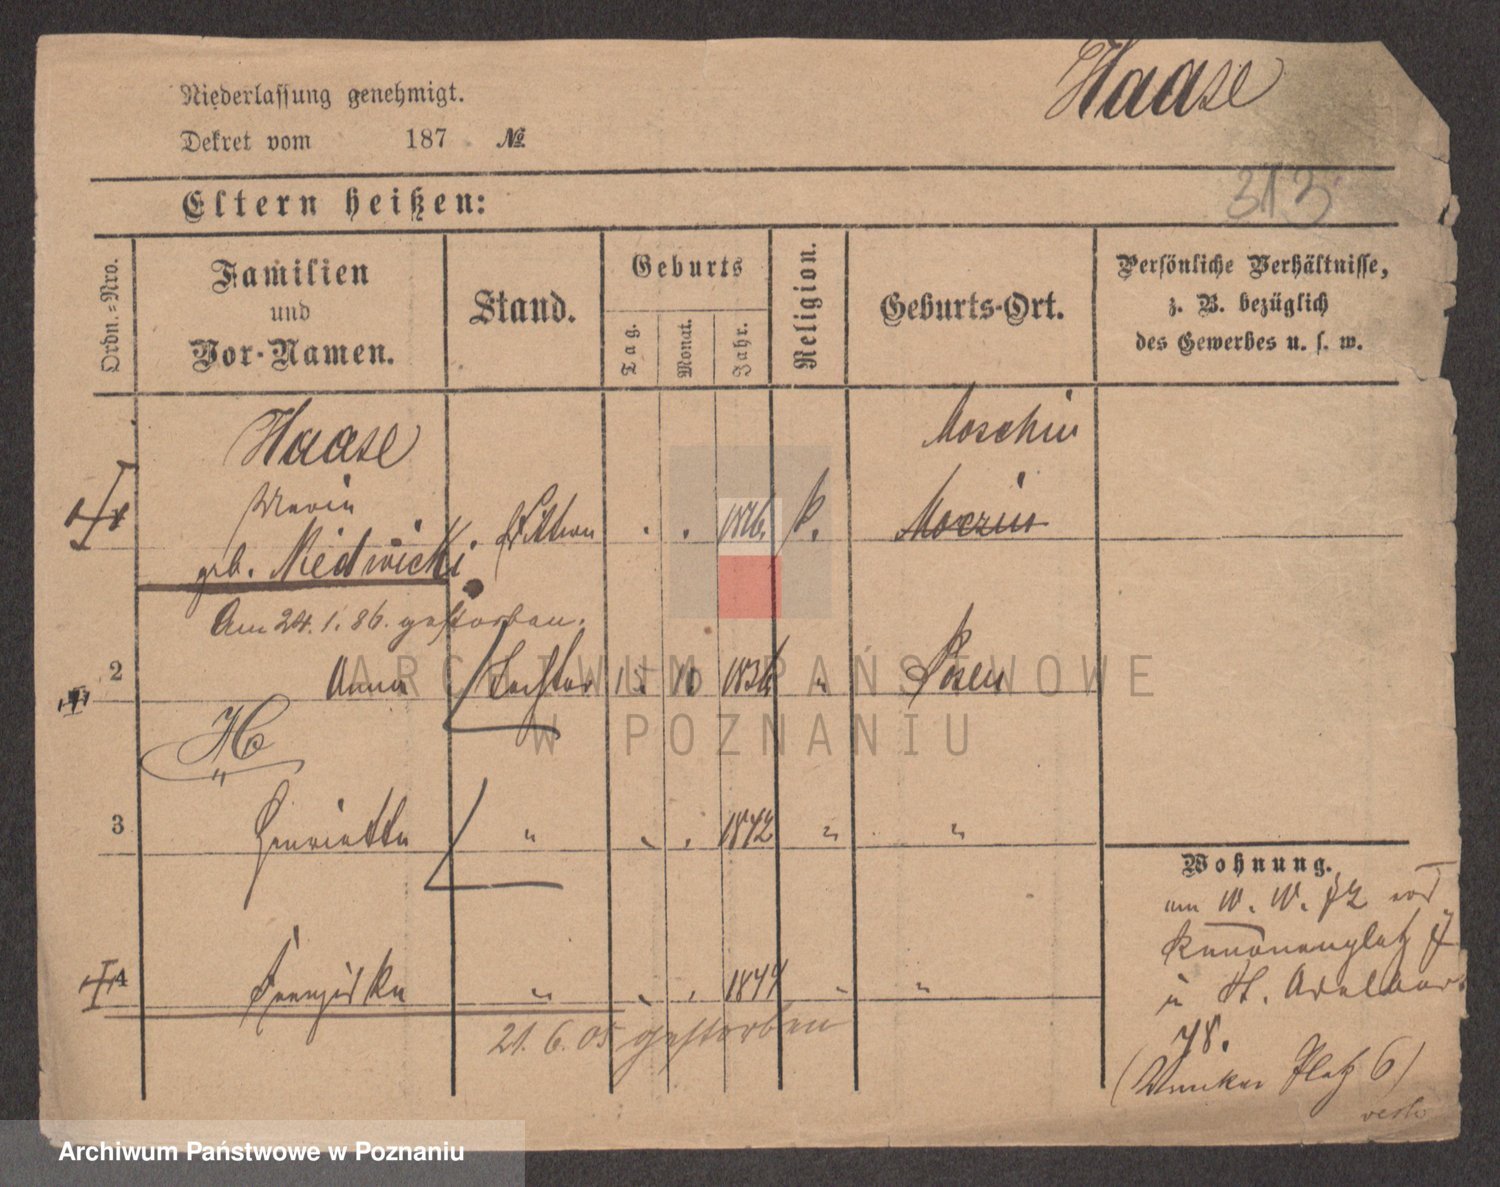 Haase
Niederlassung genehmigt.
Dekret vom 187 №
313
Eltern heißen:
Ordn.-Nro.
Familien
und
Vor-Namen.
Stand.
Geburts
Tag.
Monat.
Jahr.
Religion.
Geburts-Ort.
Persönliche Verhältnisse,
z. B. bezüglich
des Gewerbes u. s. w.
Haase
Moschin
Maria
geb. Niedwicki Wittwe . . 1816. k. Moczin
Am 24.1.86. gestorben.
2 Anna Tochter 15 10 1836 " Posen
3 Henriette " . . 1842 " "
4 Franziska " . . 1844 " "
21.6.05 gestorben
Wohnung.
am W. W. 72
Kanonenplatz 7
u St. Adalbert
48.
Platz 6)
ARCHIWUM PAŃSTWOWE
W POZNANIU
Archiwum Państwowe w Poznaniu